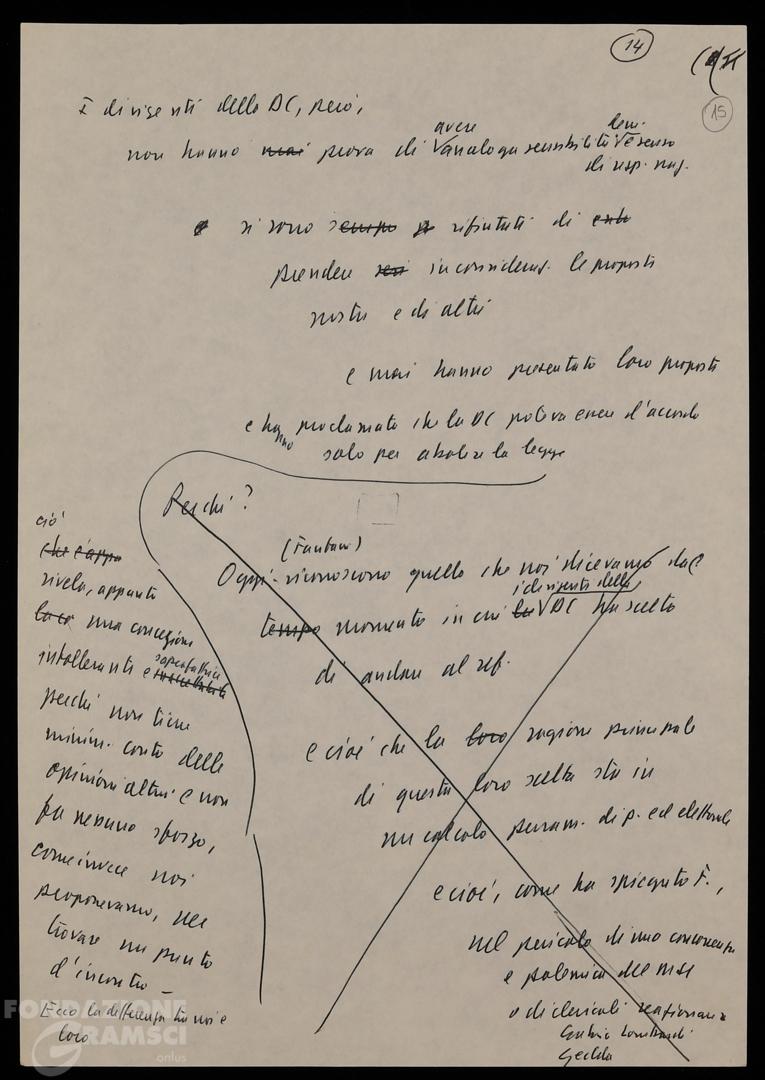 14
15
I dirigenti della DC, però,
avere dem.
non hanno mai prova di analoga sensibilità e senso
di resp. naz.
si sono sempre rifiutati di
prendere in consideraz. le proposte
nostre e di altri
e mai hanno presentato loro proposte
e hanno proclamato che la DC poteva essere d'accordo
solo per abolire la legge
Perché?
(Fanfani)
Oggi riconoscono quello che noi dicevamo dal
i dirigenti della
tempo momento in cui la DC ha scelto
di andare al ref.
e cioè che la loro ragione principale
di questa loro scelta sta in
un calcolo puram. di p. ed elettorale
e cioè, come ha spiegato F.,
nel pericolo di una concorrenza
e polemica del MSI
o di clericali reazionari
Gabrio Lombardi
Gedda
ciò
che è appu
rivela, appunto
la co una concezione
sopraffattrice
intollerante e
perché non tiene
minim. conto delle
opinioni altrui e non
fa nessuno sforzo,
come invece noi
proponevamo, nel
trovare un punto
d'incontro –
Ecco la differenza tra noi e
loro
FONDAZIONE
GRAMSCI
onlus